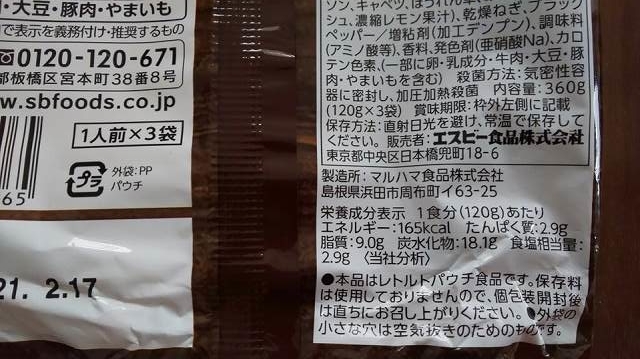 ・大豆・豚肉・やまいも
で表示を義務付け・推奨するもの
0120-120-671
都板橋区宮本町38番8号
w.sbfoods.co.jp
1人前×3袋
65
プラ
外袋:PP
パウチ
21. 2.17
ソン、キャベツ、ほうれん草
シュ、濃縮レモン果汁)、乾燥ねぎ、ブラック
ペッパー/増粘剤(加工デンプン)、調味料
(アミノ酸等)、香料、発色剤(亜硝酸Na)、カロ
テン色素、(一部に卵・乳成分・牛肉・大豆・豚
肉・やまいもを含む) 殺菌方法:気密性容
器に密封し、加圧加熱殺菌 内容量:360g
(120g×3袋) 賞味期限:枠外左側に記載
保存方法:直射日光を避け、常温で保存して
ください。 販売者:エスビー食品株式会社
東京都中央区日本橋兜町18-6
製造所:マルハマ食品株式会社
島根県浜田市周布町イ63-25
栄養成分表示 1食分(120g)あたり
エネルギー:165kcal たんぱく質:2.9g
脂質:9.0g 炭水化物:18.1g 食塩相当量:
2.9g 〈当社分析〉
●本品はレトルトパウチ食品です。保存料
は使用しておりませんので、個包装開封後
は直ちにお召し上がりください。●外袋の
小さな穴は空気抜きのためのものです。